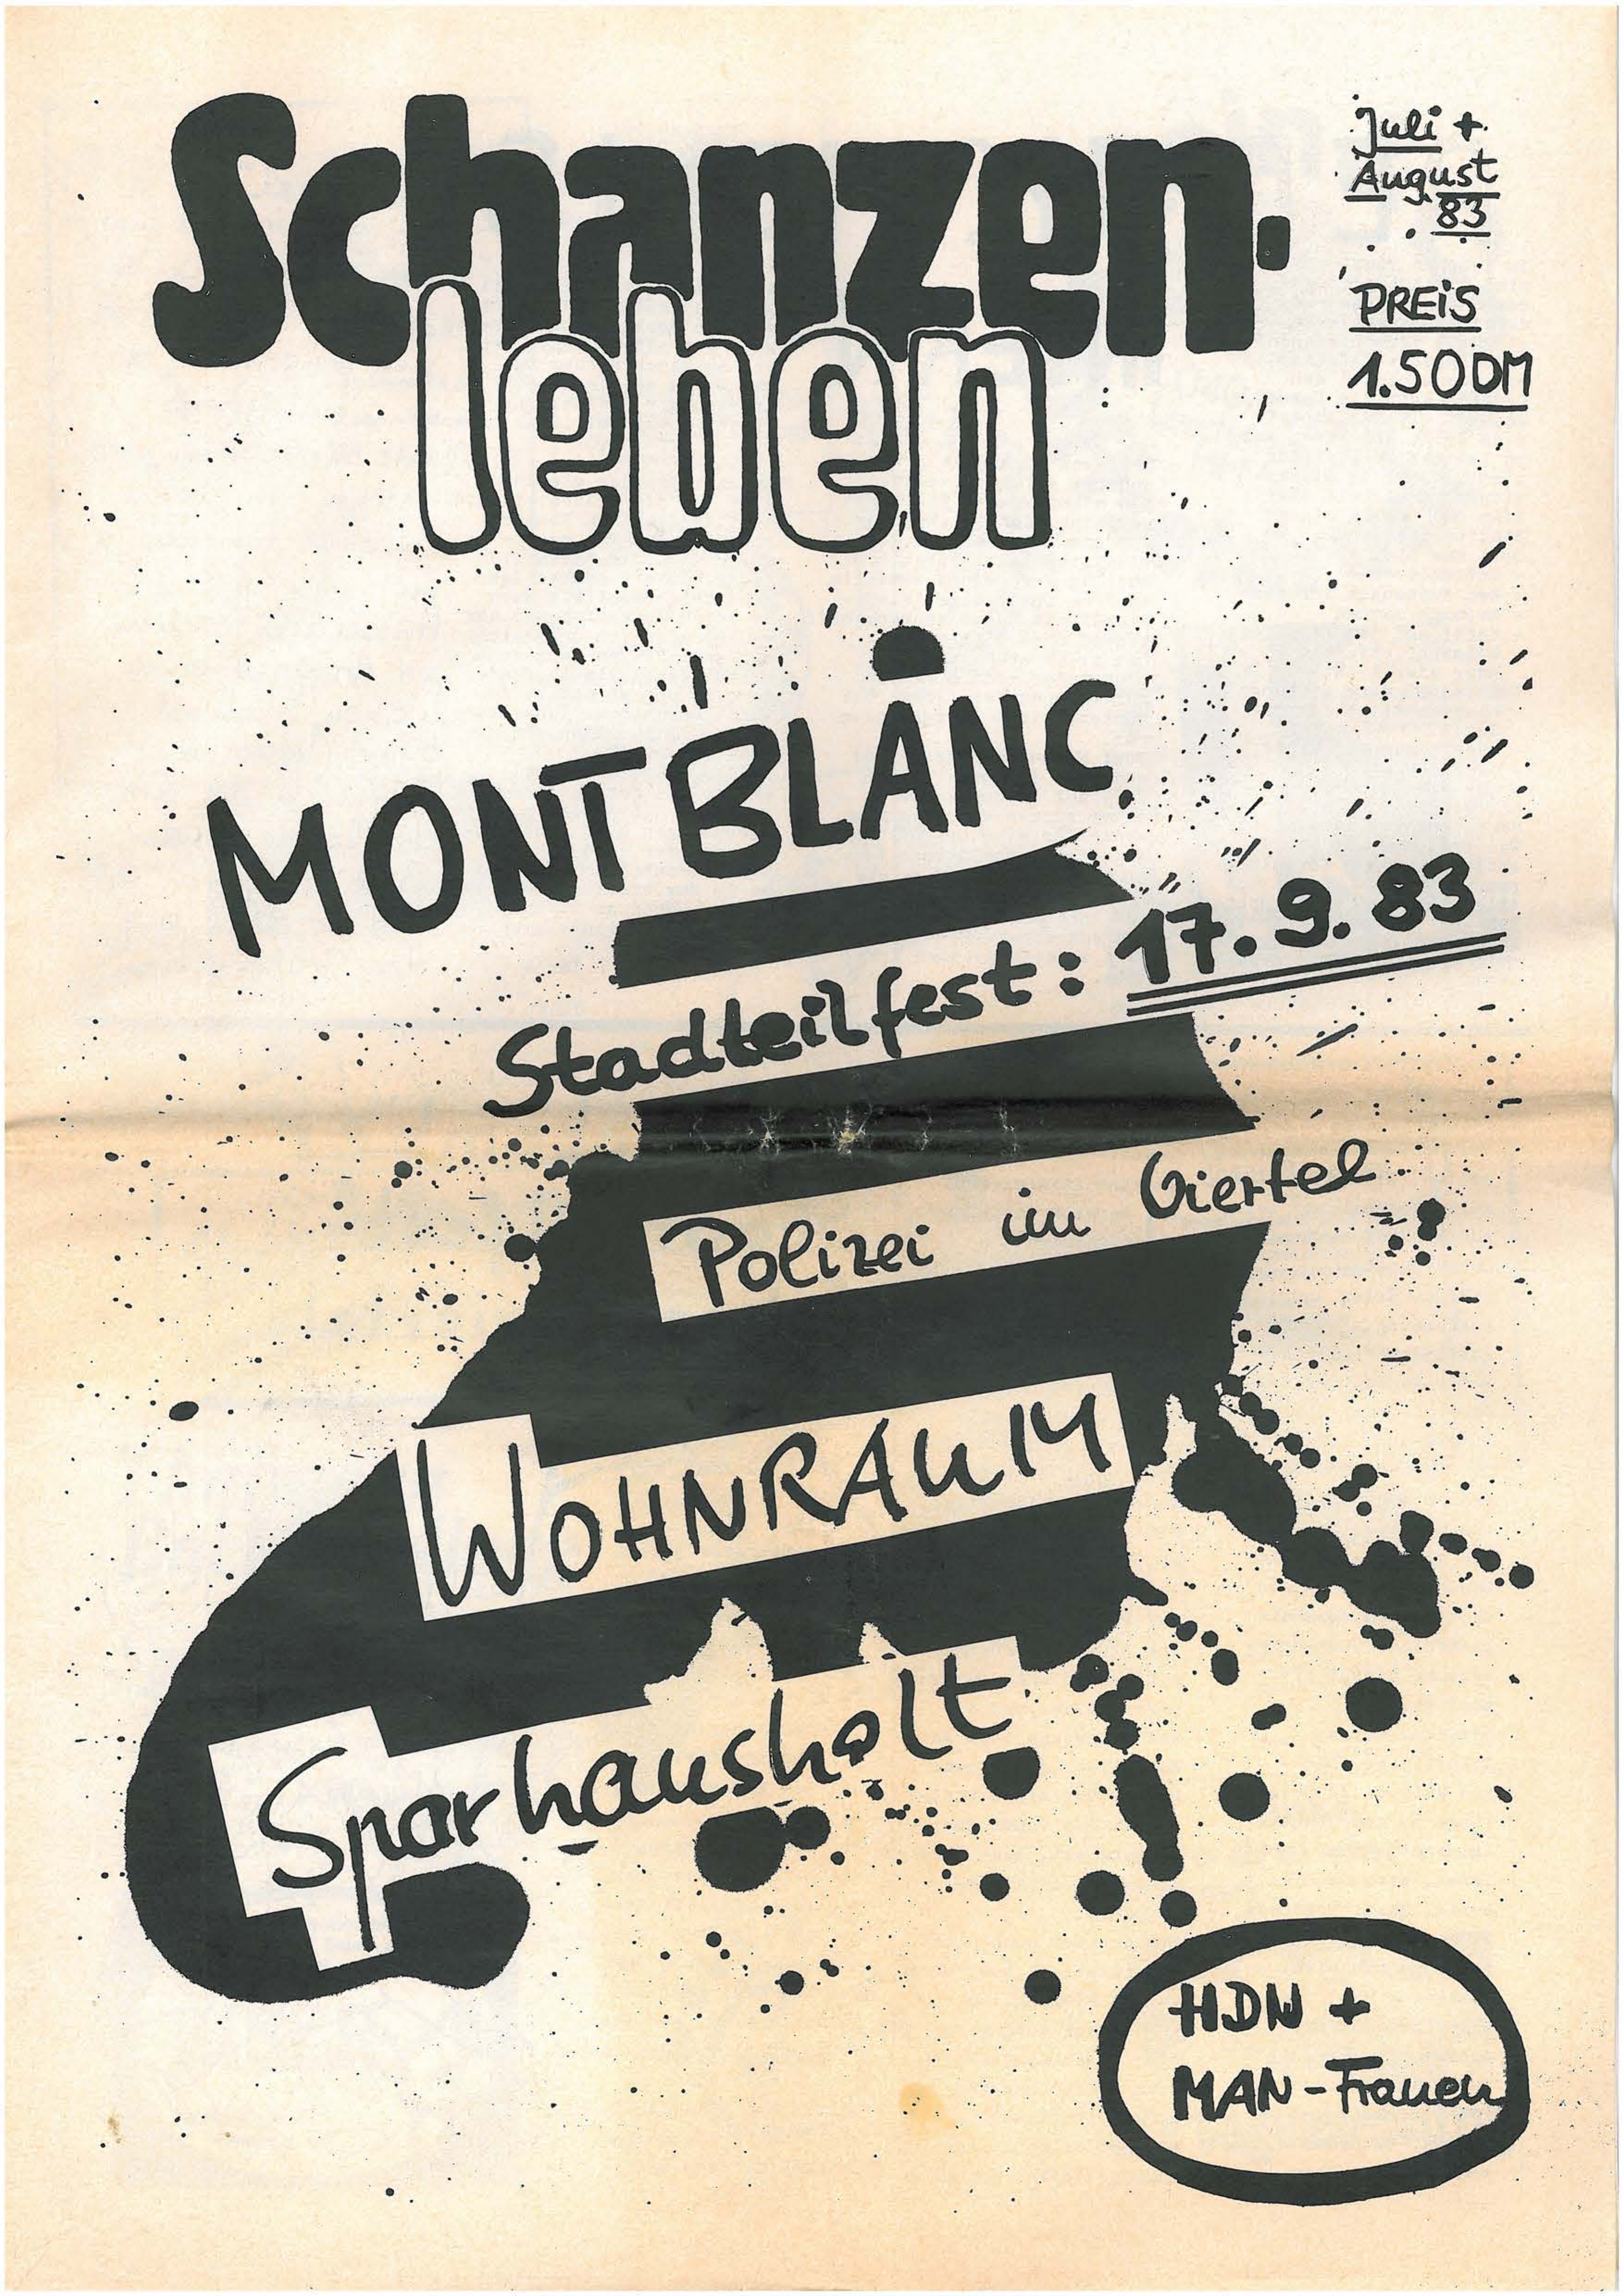 Schanzen-
leben
Juli +
August
83
PREiS
1.50 DM
MONTBLANC
Stadteilfest: 17.9.83
Polizei im Viertel
WOHNRAUM
Sparhausholt
HDW +
MAN-Frauen